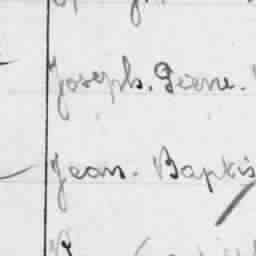 Joseph. Pierre.
Jean-Baptis